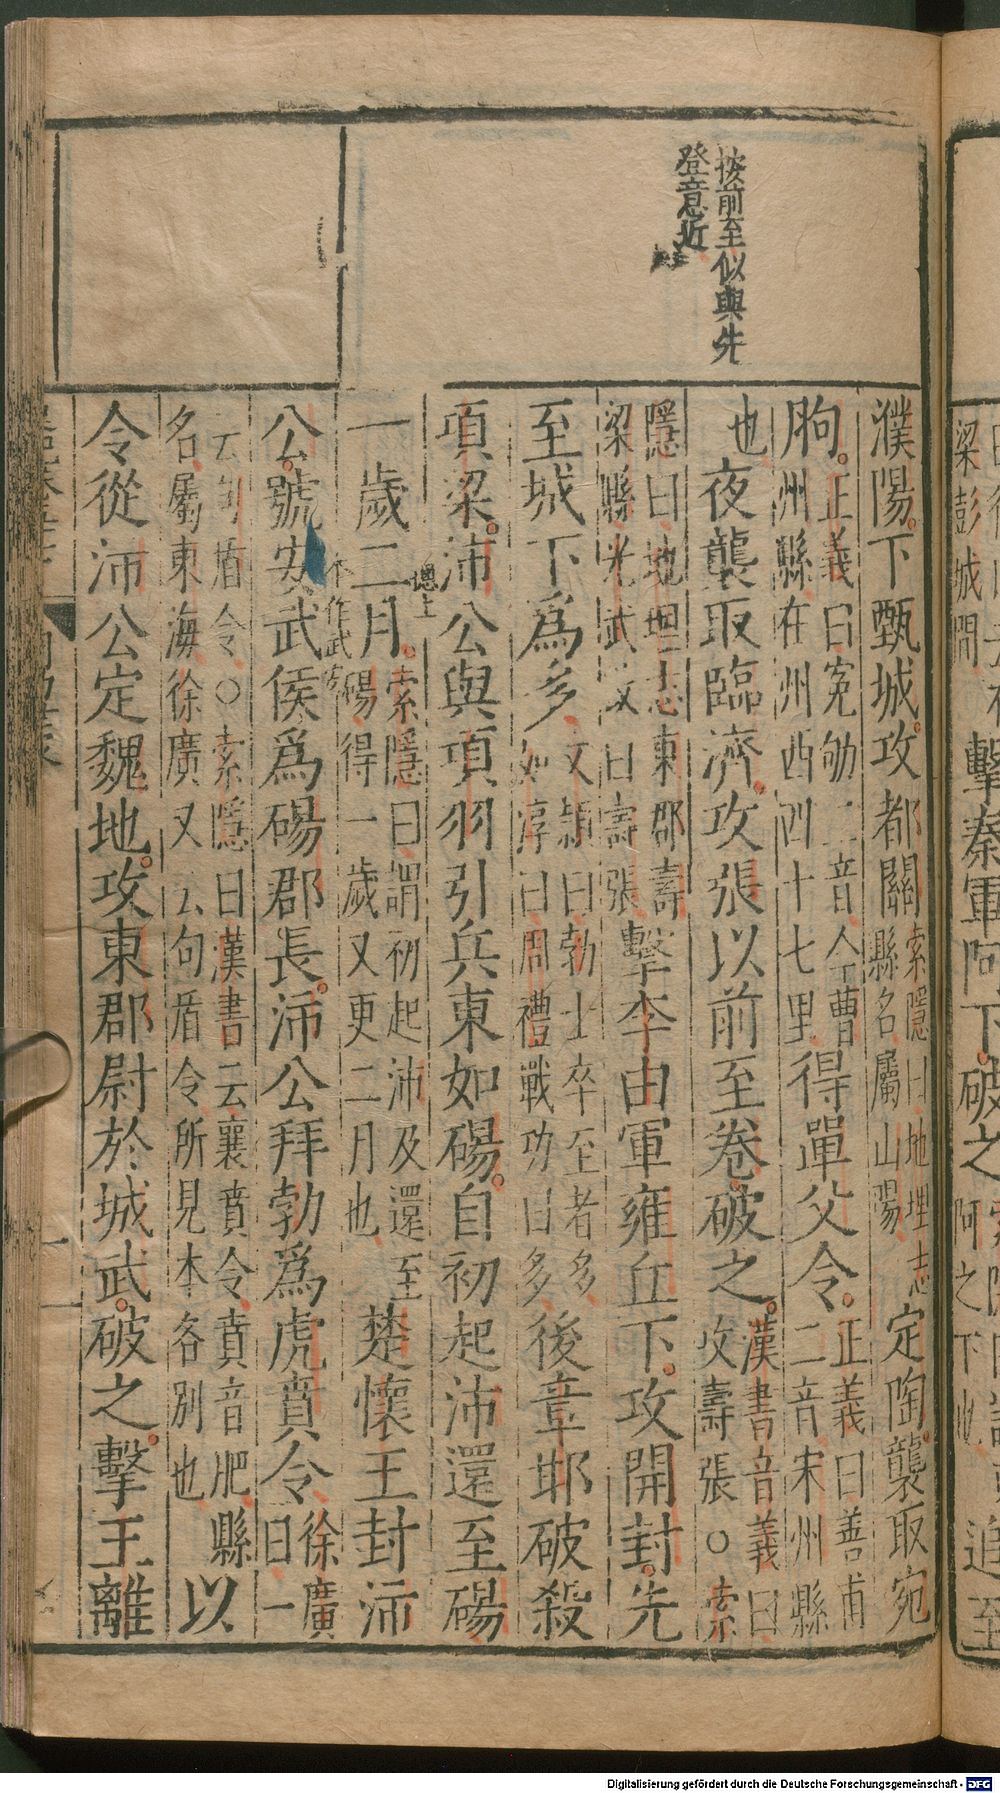 按前至似與先
登意近
濮陽下甄城攻都關索隱曰地理志縣名屬山陽定陶襲取宛
朐正義曰冤劬二音今曹州縣在州西四十七里得單父令正義曰善甫二音宋州縣
也夜襲取臨濟攻張以前至卷破之漢書音義曰攻壽張○索
隱曰地理志東郡壽梁縣光武改曰壽張擊李由軍雍丘下攻開封先
至城下為多文穎曰勃士卒至者多如淳曰周禮戰功曰多後章邯破殺
項梁沛公與項羽引兵東如碭自初起沛還至碭
一歲二月索隱曰謂初起沛及還至碭得一歲又更二月也楚懷王封沛
公號安武侯為碭郡長沛公拜勃為虎賁令徐廣曰一
云句盾令○索隱曰漢書云襄賁令賁音肥縣名屬東海徐廣又云句盾令所見本各別也以
令從沛公定魏地攻東郡尉於城武破之擊王離
梁彭城間
擊秦軍阿下破之
追至
Digitalisierung gefördert durch die Deutsche Forschungsgemeinschaft - DFG